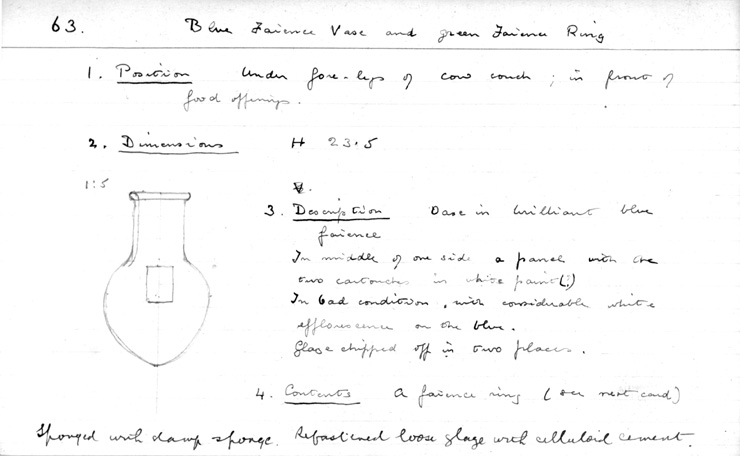 63. Blue Faience Vase and green Faience Ring
1. Position Under fore-legs of cow couch; in front of
food offerings.
2. Dimensions H 23.5
1:5
3. Description Vase in brilliant blue
faience
In middle of one side a panel with the
two cartouches in white paint(?)
In bad condition, with considerable white
efflorescence on the blue.
Glaze chipped off in two places.
4. Contents A faience ring (see next card)
Sponged with damp sponge. Refastened loose glaze with celluloid cement.